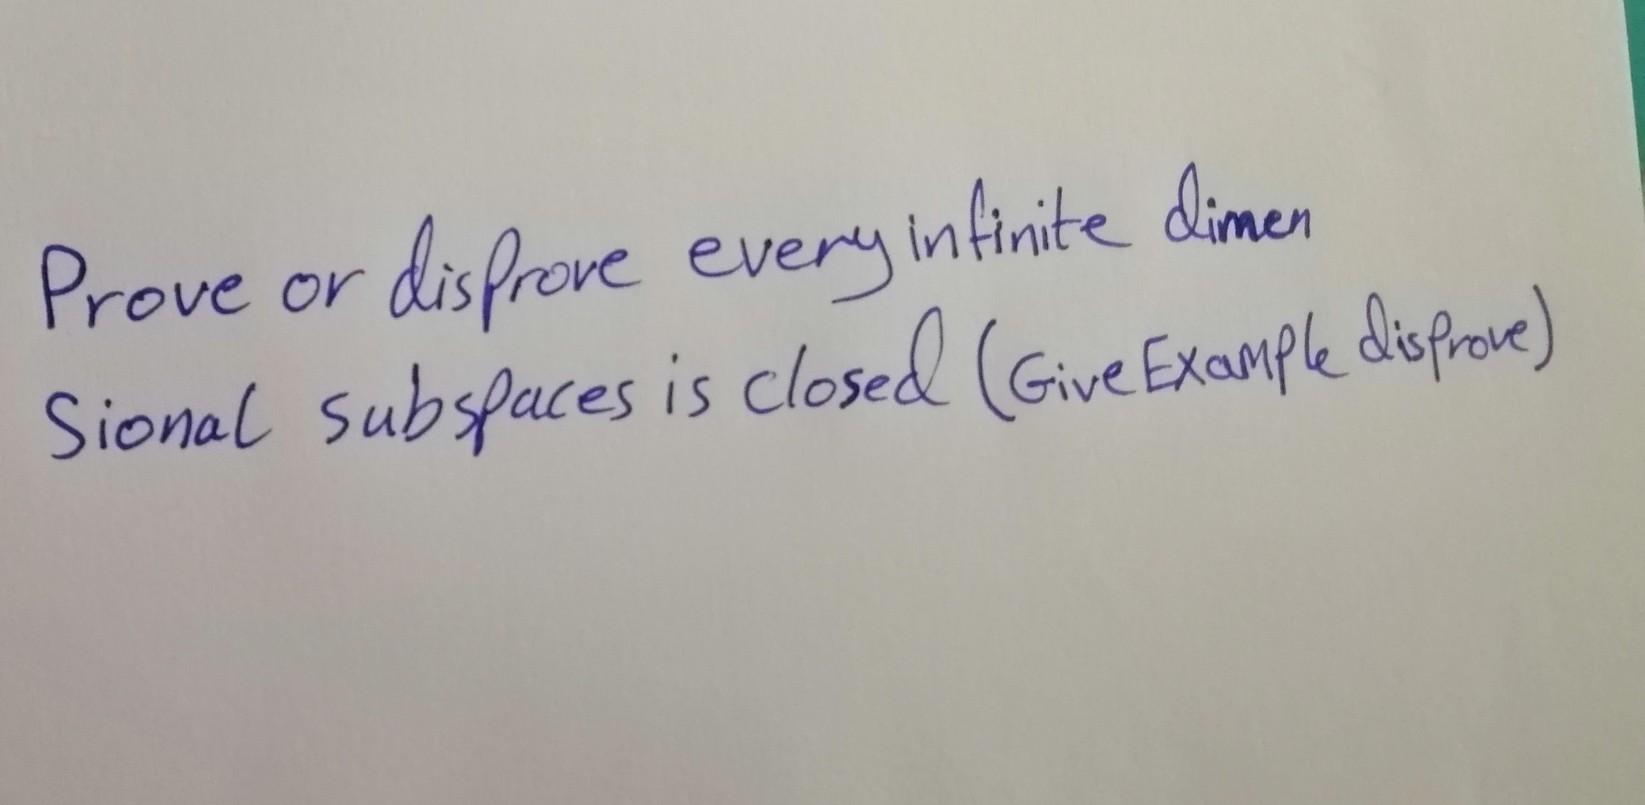 Prove or disprove every infinite dimen
sional subspaces is closed (Give Example disprove)